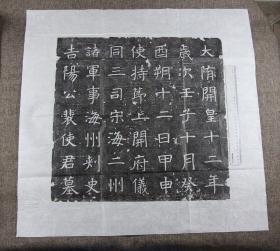 大隋開皇十二年
歲次壬子十月癸
酉朔十二日甲申
使持節上開府儀
同三司宋海二州
諸軍事海州刺史
吉陽公裴使君墓